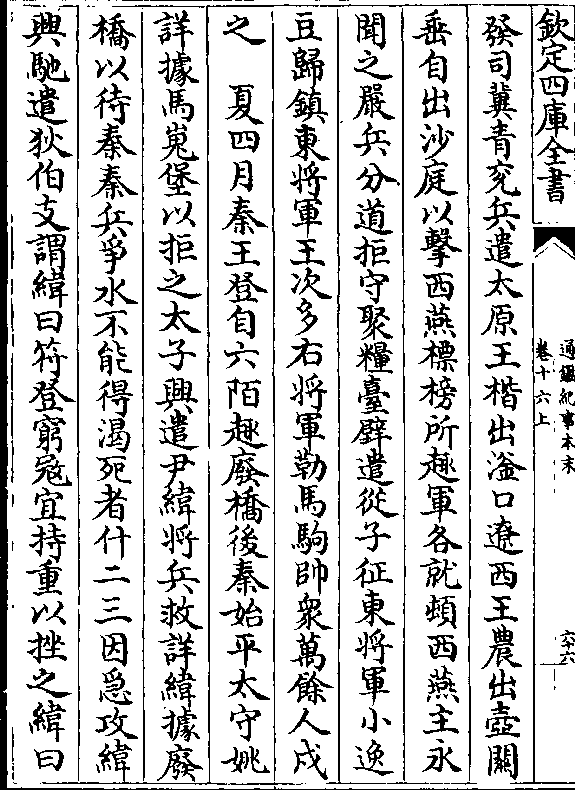 欽定四庫全書
通鑑紀事本末
卷十六上
六十六
發司冀青兗兵遣太原王楷出滏口遼西王農出壺關
垂自出沙庭以擊西燕標榜所趣軍各就頓西燕主永
聞之嚴兵分道拒守聚糧臺壁遣從子征東將軍小逸
豆歸鎮東將軍王次多右將軍勒馬駒帥衆萬餘人戍
之　夏四月秦王登自六陌趣廢橋後秦始平太守姚
詳據馬嵬堡以拒之太子興遣尹緯將兵救詳緯據廢
橋以待秦秦兵爭水不能得渴死者什二三因急攻緯
興馳遣狄伯支謂緯曰符登窮宼宜持重以挫之緯曰